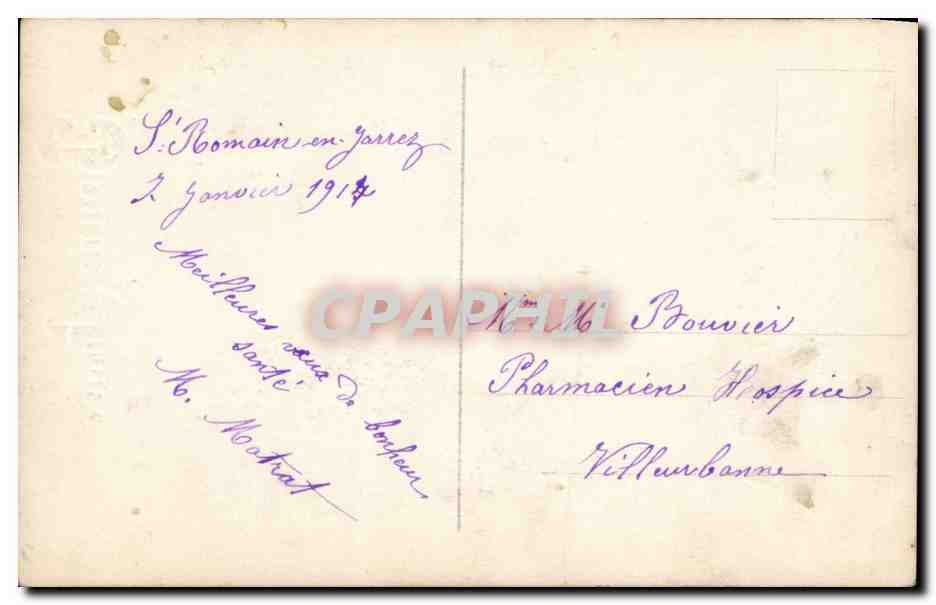 St. Romain-en-Jarrez
2 Janvier 1914
Meilleures vœux de bonheur
santé
M. Matrat
M. Bouvier
Pharmacien Hospice
Villeurbanne
CPAPHIL